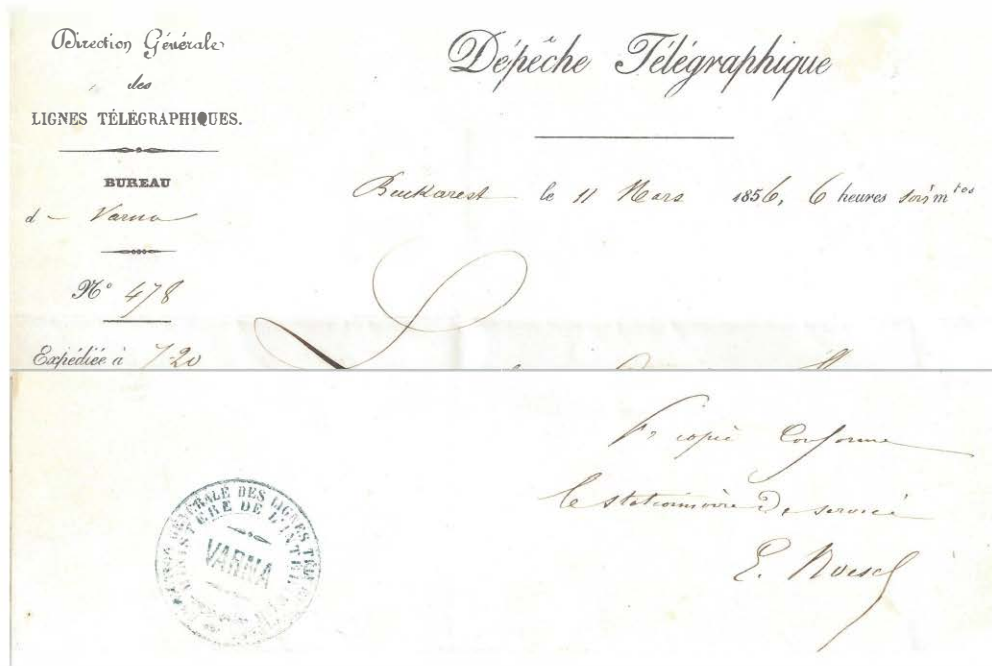 Direction Générale
des
LIGNES TÉLÉGRAPHIQUES.
BUREAU
d Varna
Nº 478
Expédiée à 7-20
Dépêche Télégraphique
Buckarest le 11 Mars 1856, 6 heures soir m^tes
Pr copie Conforme
le stationnaire De service
E.
GÉNÉRALE DES LIGNES TÉL
MINISTÈRE DE L'INTÉ
VARNA